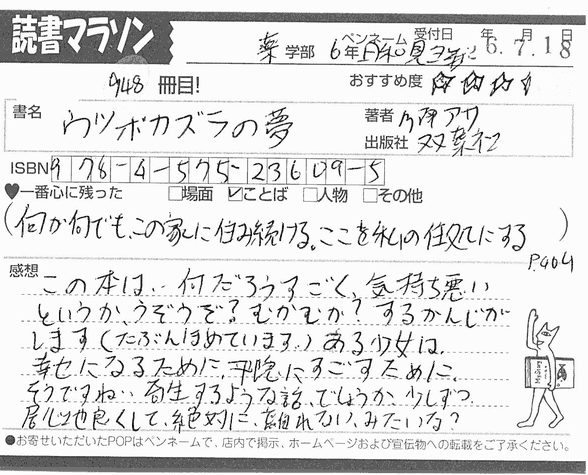 読書マラソン
薬 学部 6年 ペンネーム 受付日 年 月 日
6.7.18
948 冊目! おすすめ度
書名 ウツボカズラの夢
著者 乃南アサ
出版社 双葉社
ISBN 978-4-575-23609-5
♥一番心に残った □場面 ☑ことば □人物 □その他
(何が何でも、この家に住み続ける。ここを私の住処にする)
P.404
感想 この本は‥何だろうすごく、気持ち悪い
というか、うぞうぞ?むかむか?するかんじが
します(たぶんほめています。)ある少女は、
幸せになるために、平穏にすごすために、
そうですね‥寄生するような話、でしょうか、少しずつ、
居心地良くして、絶対に、離れない、みたいな?
●お寄せいただいたPOPはペンネームで、店内で掲示、ホームページおよび宣伝物への転載をご了承ください。